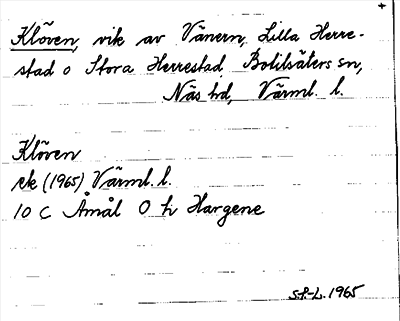 +
Klöven, vik av Vänern, Lilla Herre-
stad o Stora Herrestad, Botilsäters sn,
Näs hd, Värml. l.
Klöven
ek (1965) Värml. l.
10 C Åmål O h Hargene
S.P-L. 1965